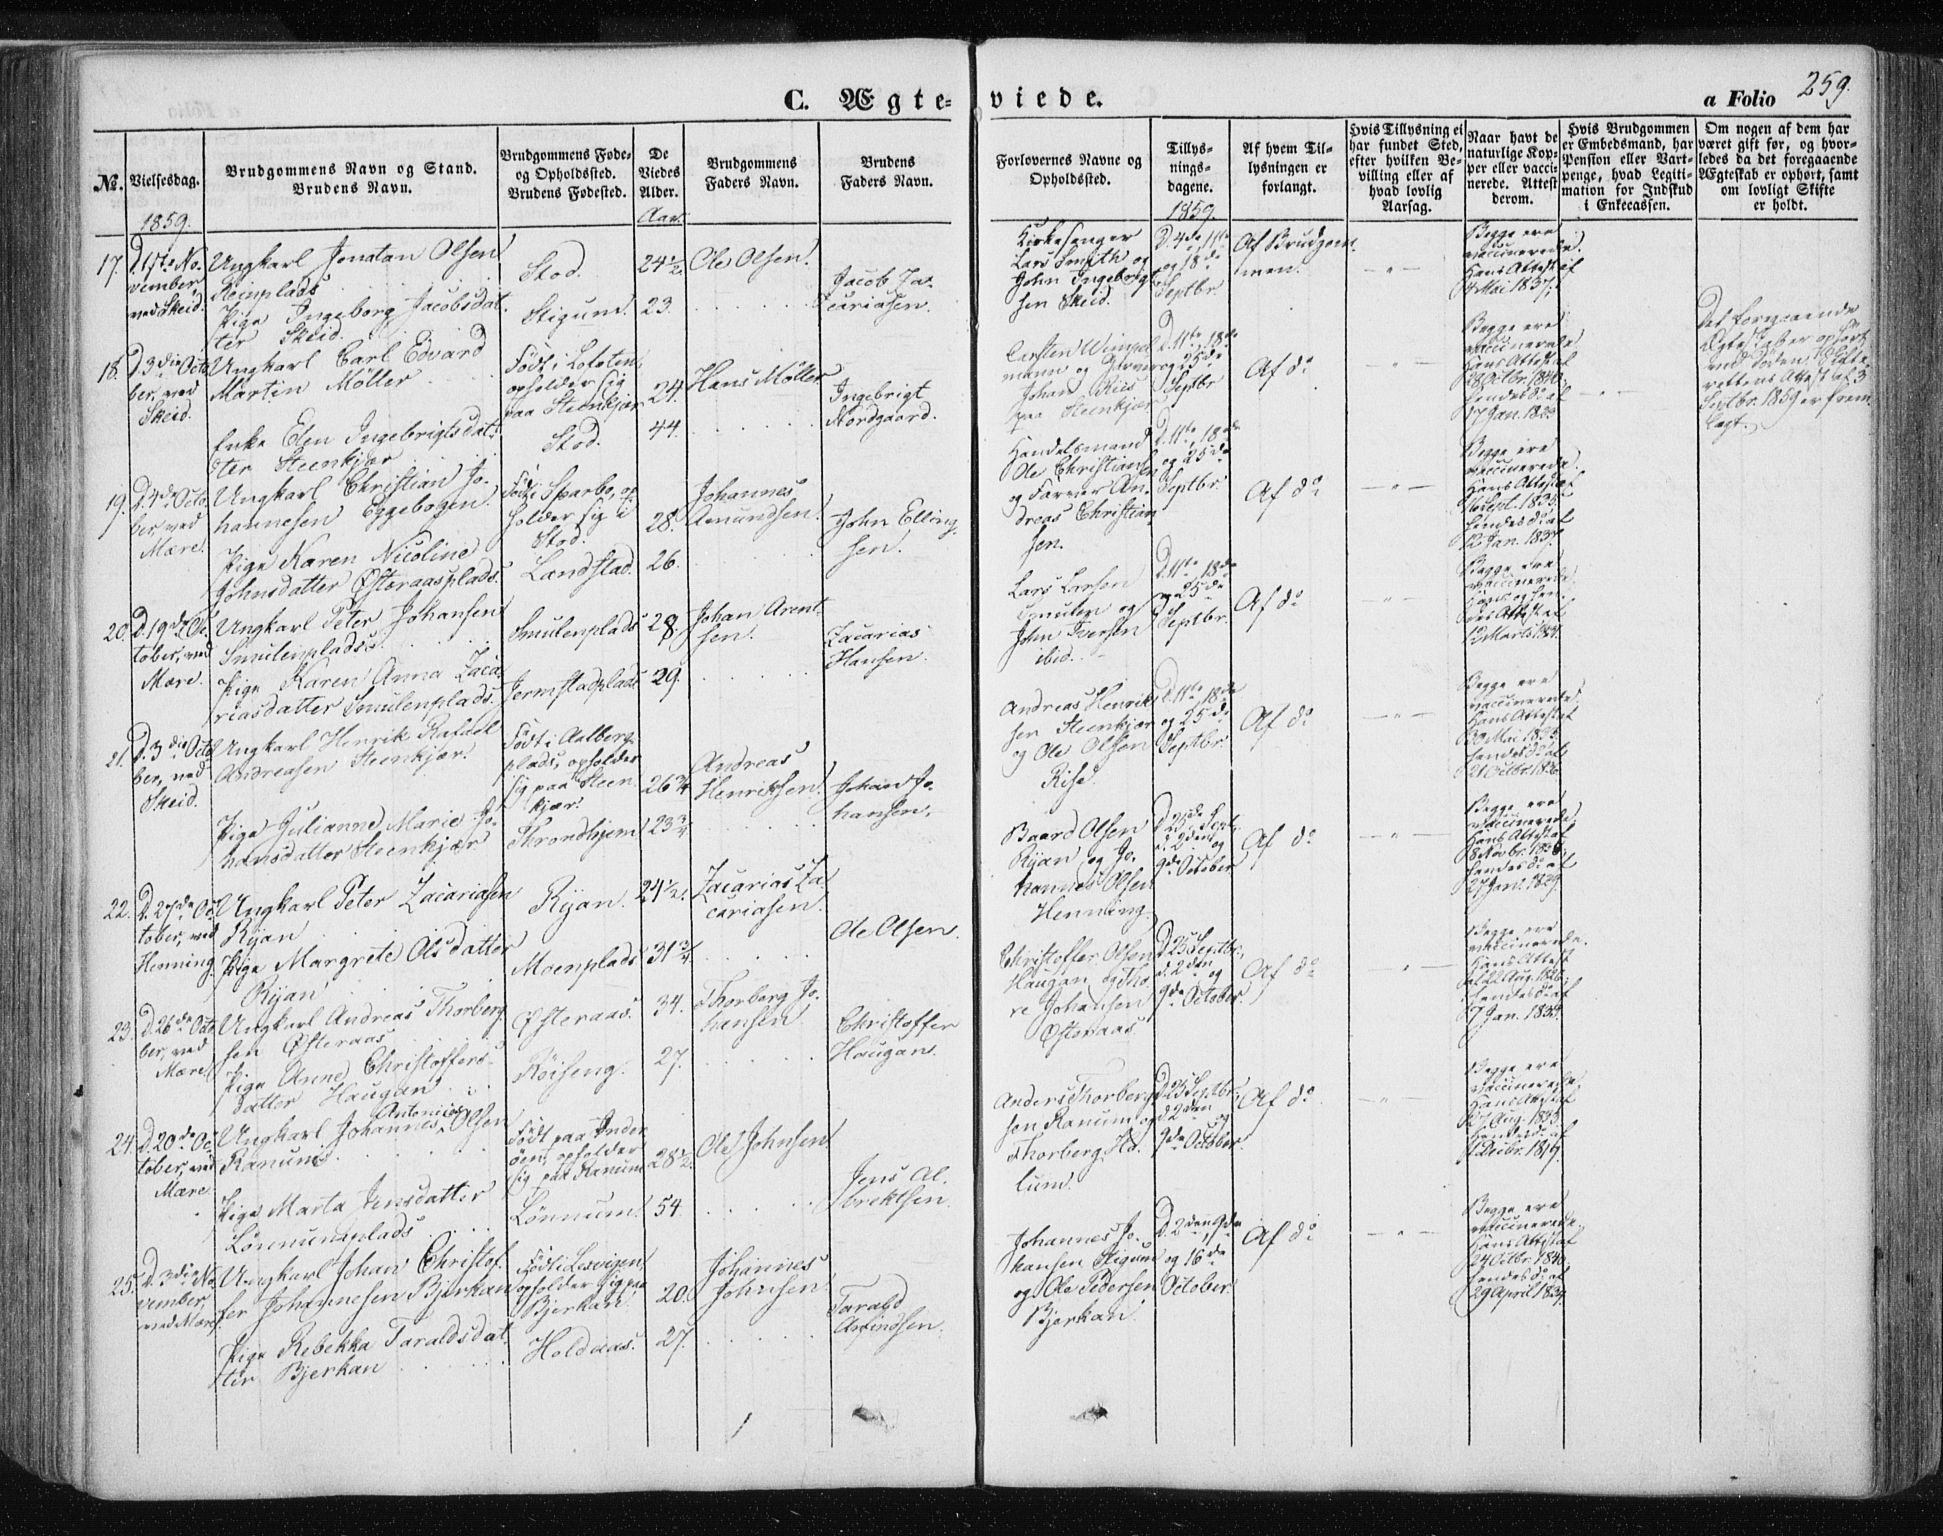 C. Ægte-viede.
a Folio 259.
No.
Vielsesdag.
Brudgommens Navn og Stand.
Brudens Navn.
Brudgommens Føde-
og Opholdssted.
Brudens Fødested.
De
Viedes
Alder.
Brudgommens
Faders Navn.
Brudens
Faders Navn.
Forlovernes Navne og
Opholdssted.
Tillys-
nings-
dagene.
Af hvem Til-
lysningen er
forlangt.
Hvis Tillysning ei
har fundet Sted,
efter hvilken Be-
villing eller af
hvad lovlig
Aarsag.
Naar havt de
naturlige Kop-
per eller vacci-
nerede. Attest
derom.
Hvis Brudgommen
er Embedsmand, har
Pension eller Vart-
penge, hvad Legiti-
mation for Indskud
i Enkecassen.
Om nogen af dem har
været gift før, og hvor-
ledes da det foregaaende
Ægteskab er ophørt, samt
om lovligt Skifte
er holdt.
1859.
Aar.
1859.
17.
D. 17de No-
vember,
ved Skeid.
Ungkarl Jonatan Olsen
Reinplads
Pige Ingeborg Jacobsdat-
ter Skeid.
Stod.
Stigum.
24½
23.
Ole Olsen.
Jacob Za-
cariasen.
Kirkesanger
Lars Smith og
John Ingebrigt-
sen Skeid.
D. 4de, 11te
og 18de
Septbr.
Af Brudgom-
men.
Begge ere
vaccinerede.
Hans Attest af
4 Mai 1837;
18.
D. 3die Octo-
ber, ved
Skeid.
Ungkarl Carl Edvard
Martin Möller
Enke Elen Ingebrigtsdat-
ter Steenkjær
Født i Lofoten,
opholder sig
paa Steenkjær
Stod.
24.
44.
Hans Möller
Ingebrigt
Nordgaard.
Carsten Wimpel-
mann og Garver
Johan
paa Steenkjær
D. 11te, 18de
og 25de
Septbr
Af do
Begge ere
vaccinerede
Hans Attest af
28 Octbr. 1840,
hendes do af
17 Jan. 1823
Det foregaaende
Ægteskab er ophørt
ved Døden. Skifte-
rettens Attest af 3
Septbr. 1859 er frem-
lagt.
19.
D. 4de Octo-
ber, ved
Mære.
Ungkarl Christian Jo-
hannesen Eggebogen.
Pige Karen Nicoline
Johnsdatter Østeraasplads.
Født i Sparbo, op-
holder sig i
Stod.
Landstad.
28.
26.
Johannes
Amundsen.
John Elling-
sen.
Handelsmand
Ole Christiansen
og Farver An-
dreas Christian-
sen.
D. 11te, 18de
og 25de
Septbr
Af do
Begge ere
vaccinerede.
Hans Attest af
Sept. 1835
hendes do af
12 Jan. 1837.
20.
D. 19de Oc-
tober, ved
Mære.
Ungkarl Peter Johansen
Smulenplads.
Pige Karen Anna Zaca-
riasdatter Smulenplads.
Smulenplads
Jermstadplads
28.
29.
Johan Arent-
sen.
Zacarias
Hansen.
Lars Larsen
Smulen og
John Iversen
ibid.
D. 11te, 18de
og 25de
Septbr.
Af do
Begge ere
vaccinerede.
Hans og hen-
des Attest af
12 Marts 1834.
21.
D. 3die Octo-
ber, ved
Skeid.
Ungkarl Henrik Rafael
Andreasen Steenkjær.
Pige Julianne Marie Jo-
hansdatter Steenkjær
Født i Aalberg-
plads, opholder
sig paa Steen-
kjær.
Throndhjem
26¾
23¾
Andreas
Henriksen.
Johan Jo-
hansen.
Andreas Henrik-
sen Steenkjær
og Ole Olsen
Rise.
D. 11te, 18de
og 25de
Septbr.
Af do
Begge ere
vaccinerede.
Hans Attest af
30 Mai 1835
hendes do af
21 Octbr. 1836
22.
D. 27de Oc-
tober, ved
Henning
Ungkarl Peter Zacariasen
Ryan
Pige Margrete Olsdatter
Ryan
Ryan.
Moenplads
24½.
31¾
Zacarias Za-
cariasen.
Ole Olsen.
Baard Olsen
Ryan og Jo-
hannes Olsen
Henning.
D. 25de Sept.,
d. 2den og
9de October
Af do
Begge ere
vaccinerede.
Hans Attest af
8 Novbr. 1836;
hendes do af
27 Jan. 1829.
23.
D. 26de Octo-
ber, ved
Mære.
Ungkarl Andreas Thorberg-
sen Østeraas
Pige Anne Christoffers-
datter Haugan
Østeraas.
Röiseng.
34.
27.
Thorberg Jo-
hansen
Christoffer
Haugan.
Christoffer Olsen
Haugan og Tho-
re Johansen
Østeraas
D. 25 Septbr.,
d. 2den og
9de October.
Af do
Begge ere
vaccinerede.
Hans Attest
af 22 Aug. 1826;
hendes do af
17 Jan. 1833.
24.
D. 20de Oc-
tober, ved
Mære
Ungkarl Johannes Antonius Olsen
Ranum
Pige Marta Jensdatter
Lönnumsplads
Født paa Inder-
öen, opholder
sig paa Ranum
Lönnum.
28½.
54.
Ole Johnsen
Jens Al-
brektsen
Anders Thorberg-
sen Ranum og
Thorberg Hal-
lum.
D. 25 Septbr.,
d. 2den og
9de October.
Af do
Begge ere
vaccinerede.
Hans Attest af
27 Aug. 1835.
hendes do af
1 Decbr. 1819.
25.
D. 3die No-
vember,
ved Mære.
Ungkarl Johan Christof-
fer Johannesen Bjerkan
Pige Rebekka Taraldsdat-
ter Bjerkan
Født i Lexvigen,
opholder sig paa
Bjerkan.
Holdaas.
20.
27.
Johannes
Johnsen.
Tarald
Arfindsen.
Johannes Jo-
hansen Stigum
og Ole Pedersen
Bjerkan.
D. 2den, 9de
og 16de
October.
Af do
Begge ere
vaccinerede.
Hans Attest af
24 Octbr. 1840.
hendes do af
29 April 1837.